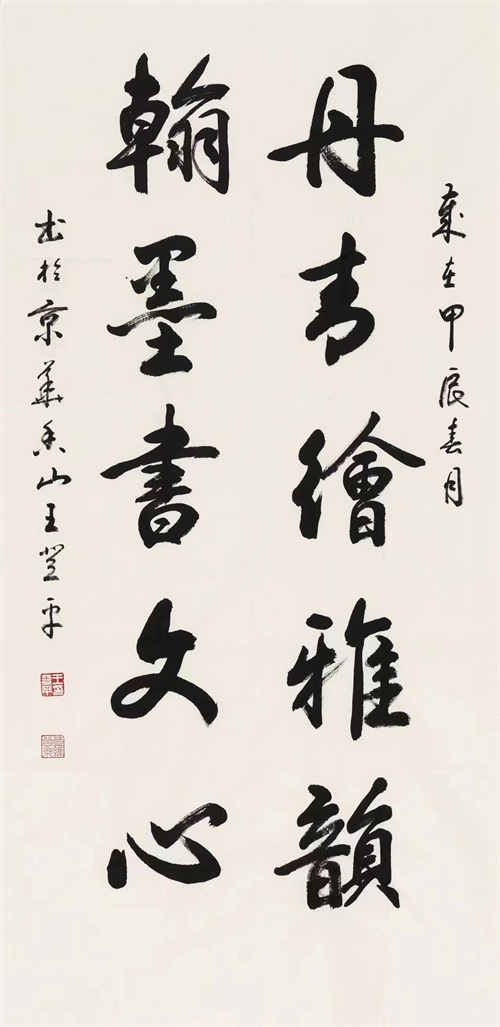 歲在甲辰春月
丹青繪雅韻
翰墨書文心
書於京華香山王登平